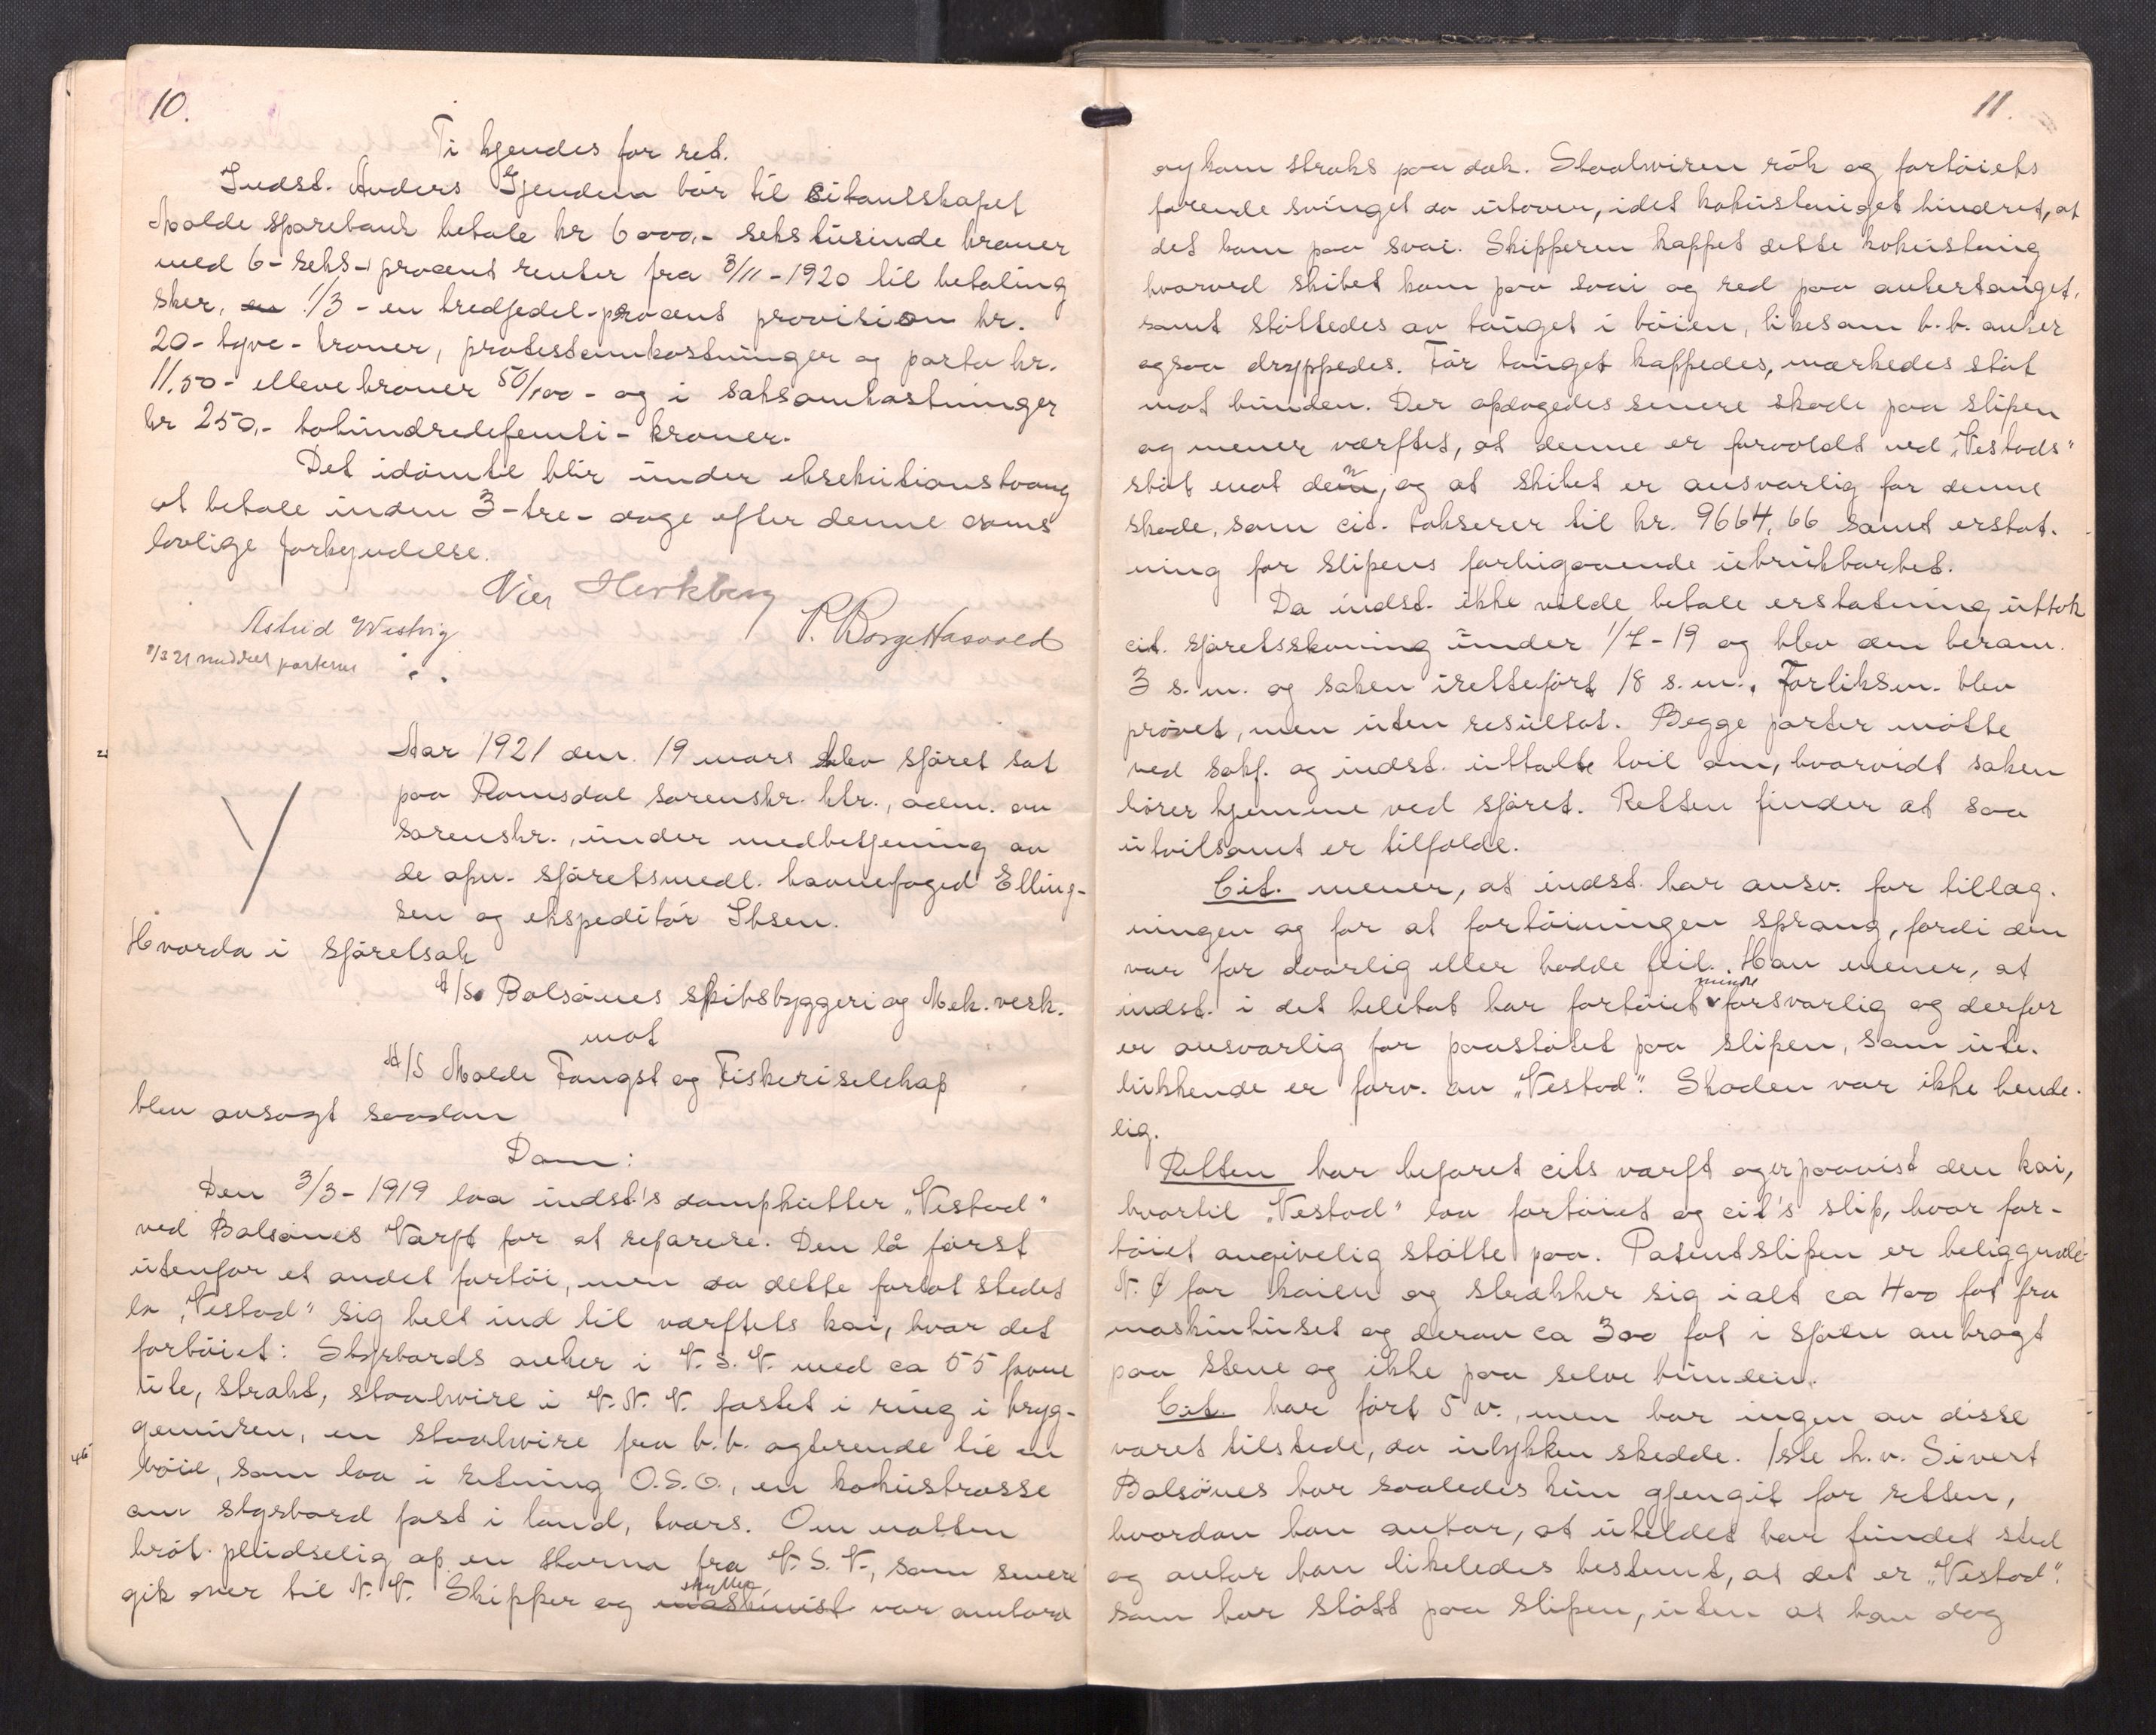 10.
Ti kjendes for ret.
Indst. Anders Gjendem bör til citantskapet
Molde sparebank betale kr 6000,- seks tusinde kroner
med 6-seks- procent renter fra 3/11-1920 til betaling
sker, en 1/3 - en tredjedel-procent provision kr.
20- tyve- kroner, protestomkostninger og porto kr.
11.50 - elleve kroner 50/100 - og i saksomkostninger
kr 250,- tohundredefemti- kroner.
Det idömte blir under eksekutionstvang
at betale inden 3-tre- dage efter denne doms
lovlige forkyndelse.
Herkberg
Astrid Westvig
P. Borge Hasvold
parterne
Aar 1921 den 19 mars blev sjöret sat
paa Romsdal sorenskr. ktr., adm. av
sorenskr., under medbetjening av
de opn. sjöretsmedl. havnefoged Elling-
sen og ekspeditör Ibsen.
Hvorda i sjöretsak
A/S Bolsönes skibsbyggeri og Mek. verk.
mot
A/S Molde Fangst og Fiskeriselskap
blev avsagt saadan
Dom:
Den 3/3-1919 laa indst's dampkutter „Vestad"
ved Bolsönes Værft for at reparere. Den lå först
utenfor et andet fartöi, men da dette forlot stedet
la „Vestad" sig helt ind til værftets kai, hvor det
fortöiet: Styrbords anker i V.S.V. med ca 55 favne
ute, strakt, staalwire i V.N.V. fastet i ring i bryg-
gemuren, en staalwire fra b.b. agterende til en
böie, som laa i retning O.S.O., en kokustrosse
om styrbord fast i land, tvers. Om natten
bröt pludselig op en storm fra V.S.V., som senere
gik over til N.V. Skipper og maskinist var ombord
11.
og kom straks paa dæk. Staalwiren rök og fartöiets
forende svinget da utover, idet kokustauget hindret, at
det kom paa svai. Skipperen kappet dette kokustaug
hvorved skibet kom paa svai og red paa ankertauget,
samt stöttedes av tauget i böien, likesom b.b. anker
ogsaa droppedes. Før tauget kappedes, merkedes stöt
mot bunden. Der opdagedes senere skade paa slipen
og mener værftet, at denne er forvoldt ved „Vestads"
stöt mot den, og at skibet er ansvarlig for denne
skade, som cit. takserer til kr. 9664,66 samt erstat-
ning for slipens forbigaaende ubrukbarhet.
Da indst. ikke vilde betale erstatning uttok
cit. sjöretsstevning under 1/7-19 og blev den beram.
3 s.m. og saken iretteført 18 s.m., Forliksm. blev
prövet, men uten resultat. Begge parter mötte
ved sakf. og indst. uttalte tvil om, hvorvidt saken
hörer hjemme ved sjöret. Retten finder at saa
utvilsomt er tilfælde.
Cit. mener, at indst. har ansv. for tillæg-
ningen og for at fortöiningen sprang, fordi den
var for daarlig eller hadde feil. Han mener, at
indst. i det heletat har fortöiet mindre forsvarlig og derfor
er ansvarlig for paastötet paa slipen, som ute-
lukkende er forv. av „Vestad". Skaden var ikke hende-
lig.
Retten har befaret cits værft og er paavist den kai,
hvortil „Vestad" laa fortöiet og cit's slip, hvor far-
töiet angivelig stötte paa. Patentslipen er beliggende
N.Ø for kaien og strækker sig i alt ca 400 fot fra
maskinhuset og derav ca 300 fot i sjöen anbragt
paa stene og ikke paa selve bunden.
Cit. har fört 5 v., men har ingen av disse
været tilstede, da ulykken skedde. 1ste h.v. Sivert
Bolsönes har saaledes kun gjengit for retten,
hvordan han antar, at uheldet har fundet sted
og antar han likeledes bestemt, at det er „Vestad"
som har stött paa slipen, uten at han dog